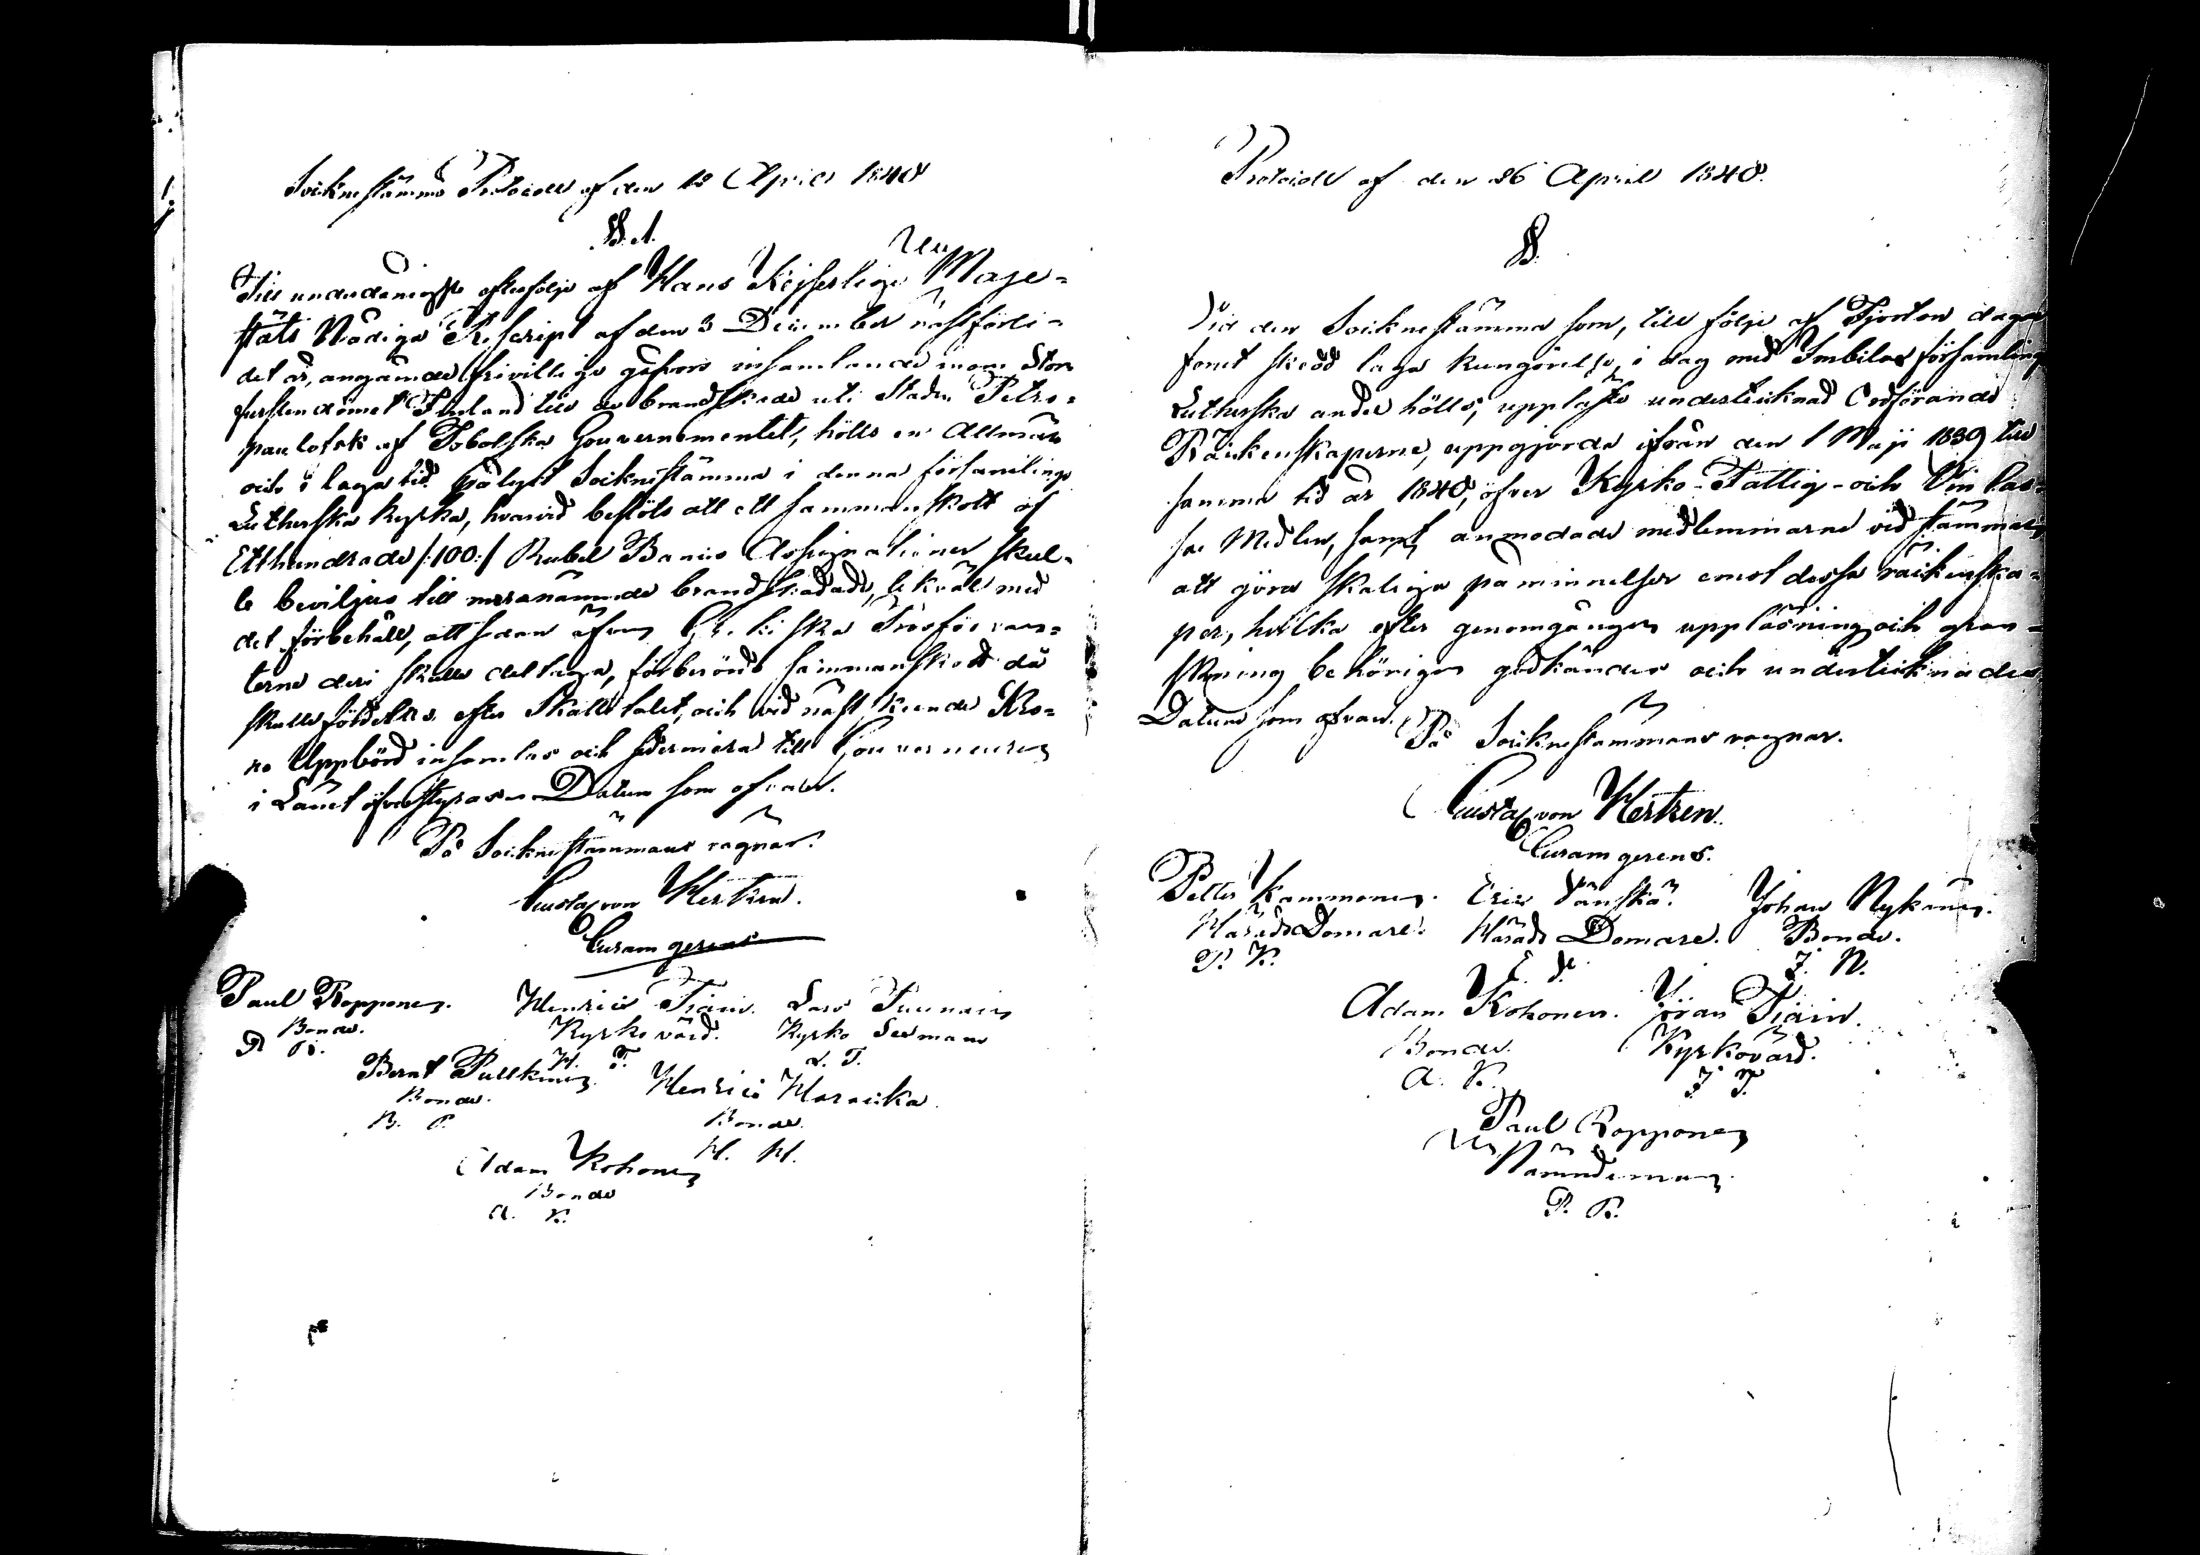 Sockne stämmo Protocoll af den 12 April 1840
§. 1.
Till underdånigste efterfölje af Hans Kejserlige Maje=
stäts Nådiga Rescript af den 3 December nästförli=
det år, angående frivillige gåfvors insamlande inom Stor
furstendömet Finland till de brandskade uti Staden Petro=
paulofsk af Tobolska Gouvernementet, hölls en Allmän
och i laga tid pålyst Socknestämma i denna församlings
Lutherska kyrka, hvarvid beslöts att ett sammanskott af
Etthundrade /:100:/ Rubel Banco Assignationer skul=
le beviljas till mersnämnde brandskadade, likväl med
det förbehåll, att sedan äfven Grekiska Trosförvan=
terne deri skulle deltaga, förberörde sammanskott då
skulle fördelas efter Skatttalet, och vid näst skeende Kro=
no Uppbörd insamlas och sedermera till Gouverneuren
i Länet öfverstyras. Datum som ofvan.
På Sockne stämmans vägnar:
Gustaf von Hertzen.
Curam gerens
Paul Ropponen. Henric Tiain. Lars Tuunain
Bonde. Kyrkovärd. Kyrko Sexman
P. R. H. T. L. T.
Bernt Pullkinen. Henric Haraicka.
Bonde. Bonde.
B. P. H. H.
Adam Kohonen
Bonde
A. K.
Protocoll af den 26 April 1840.
§.
Vid den Sockne stämma som, till följe af Fjorton dagar
förut skedd laga kungörelse, i dag med Imbilax församlings
Lutherska andel hölls, uppläste undertecknad Ordförande
Räckenskaperne, uppgjorde ifrån den 1 Maji 1839 till
samma tid år 1840, öfver Kyrko- Fattig- och Vin Cas=
sae Medlen, samt anmodade medlemmarne vid stämman,
att göra skäliga påminnelser emot dessa räckenska=
per, hvilka efter genomgången uppläsning och gran=
skning behörigen godkändes och undertecknades
Datum som ofvan.
På Socknestämmans vägnar.
Gustaf von Hertzen.
Curam gerens.
Petter Kammonen. Eric Vänskä. Johan Nykänen.
Härads Domare. Härads Domare. Bonde.
P. K. E. V. J. N.
Adam Kohonen. Jöran Tiain.
Bonde. Kyrkovärd.
A. K. J. T.
Paul Ropponen
Nämndeman.
P. R.